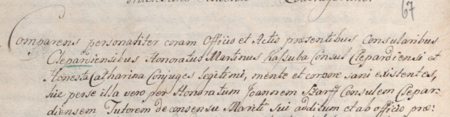 67
Comparens personaliter coram Officio et Actis præsentibus Consularibus
Clepardiensibus Honoratus Martinus Kałsuba Consul Clepardiensis et
Honesta Catharina Conjuges legitimi, mente et corpore sani existentes,
hic per se illa vero per Honoratum Joannem Szarff Consulem Clepar-
diensem Tutorem de consensu Mariti sui auditum et ab officio præ-